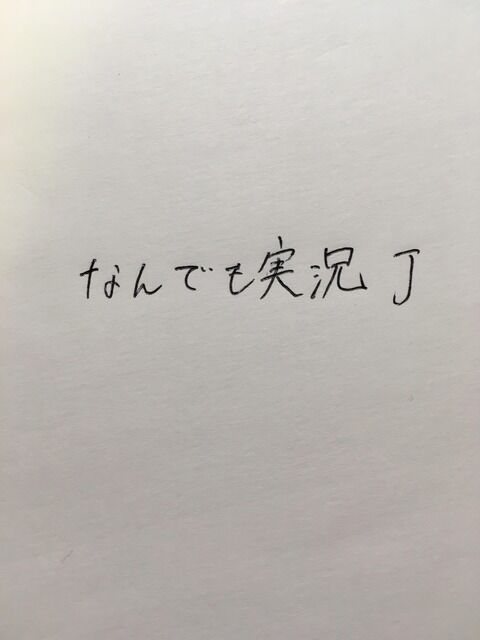 なんでも実況 J